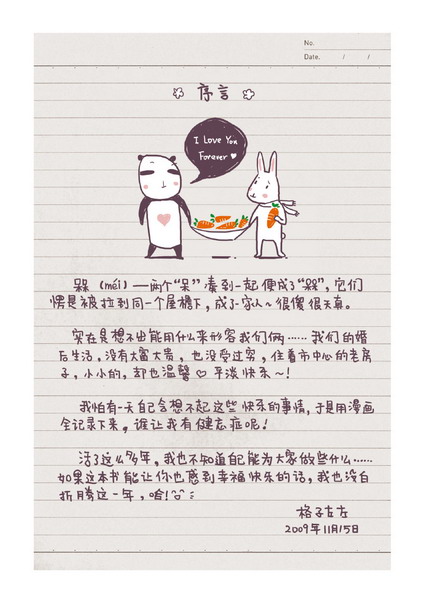 No.
Date. / /
序言
I Love You
Forever
槑（méi）—两个“呆”凑到一起便成了“槑”，它们
愣是被拉到同一个屋檐下，成了家人~很傻很天真。
实在是想不出能用什么来形容我们俩……我们的婚
后生活，没有大富大贵，也没受过穷，住着市中心的老房
子，小小的，却也温馨♡平淡快乐~！
我怕有一天自己会想不起这些快乐的事情，于是用漫画
全记录下来，谁让我有健忘症呢！
活了这么多年，我也不知道自己能为大家做些什么……
如果这本书能让你也感到幸福快乐的话，我也没白
折腾这一年，哈！
格子左左
2009年11月15日